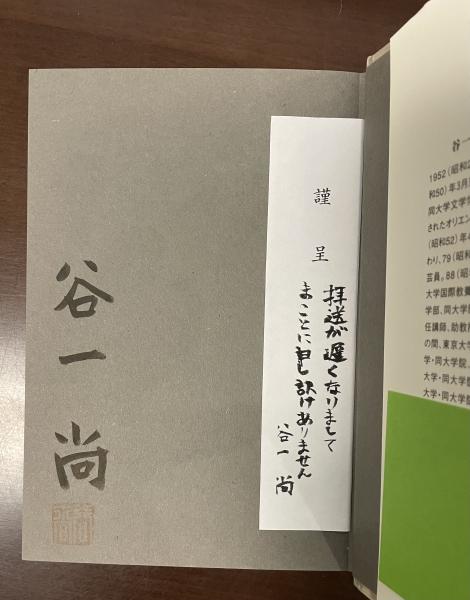 谷一尚
謹呈
拝送が遅くなりまして
まことに申し訳けありません
谷一 尚
谷一
1952(昭和2
和50)年3月
同大学文学
されたオリエン
(昭和52)年4
わり、79(昭
芸員。88(昭
大学国際教養
学部、同大学
任講師、助教
の間、東京大
学・同大学院、
大学・同大学
大学・同大学